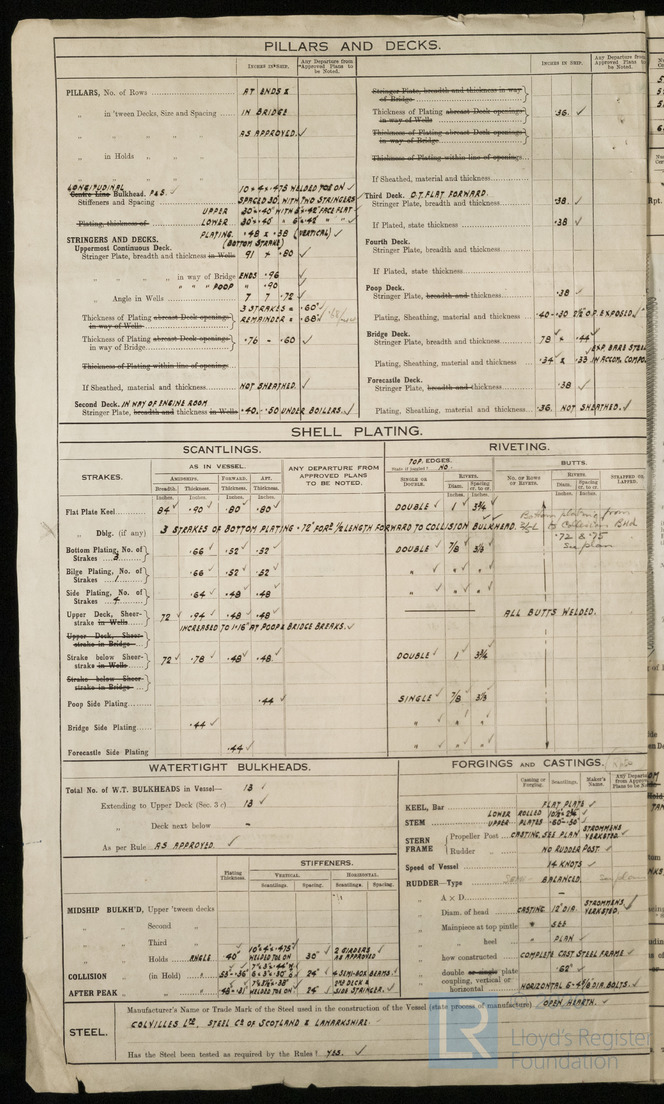 PILLARS AND DECKS.
INCHES IN SHIP.
Any Departure from Approved Plans to be Noted.
PILLARS, No. of Rows AT ENDS &
„ in 'tween Decks, Size and Spacing IN BRIDGE
„ „ „ „ AS APPROVED. ✓
„ in Holds „ „
LONGITUDINAL
Centre Line Bulkhead. P&S. ✓ 10 × 4 × .475 WELDED TOE ON ✓
Stiffeners and Spacing SPACED 30" WITH TWO STRINGERS
Plating, thickness of LOWER
UPPER
PLATING. .48 & .38 (VERTICAL) ✓
(BOTTOM STRAKE)
STRINGERS AND DECKS.
Uppermost Continuous Deck.
Stringer Plate, breadth and thickness in Wells 91 × .80 ✓
„ „ „ in way of Bridge ENDS .96
„ „ „ POOP „ .90
„ Angle in Wells 7 7 .72 ✓
Thickness of Plating abreast Deck openings in way of Wells 3 STRAKES = .60 ✓
REMAINDER = .68
Thickness of Plating abreast Deck openings in way of Bridge .76 - .60 ✓
Thickness of Plating within line of openings
If Sheathed, material and thickness NOT SHEATHED. ✓
Second Deck. IN WAY OF ENGINE ROOM
Stringer Plate, breadth and thickness in Wells .40. - .50 UNDER BOILERS. ✓
INCHES IN SHIP.
Any Departure from Approved Plans to be Noted.
Stringer Plate, breadth and thickness in way of Bridge
Thickness of Plating abreast Deck openings in way of Wells .36. ✓
Thickness of Plating abreast Deck openings in way of Bridge
Thickness of Plating within line of openings
If Sheathed, material and thickness
Third Deck. O.T. FLAT FORWARD.
Stringer Plate, breadth and thickness .38 ✓
If Plated, state thickness .38 ✓
Fourth Deck.
Stringer Plate, breadth and thickness
If Plated, state thickness
Poop Deck.
Stringer Plate, breadth and thickness .38 ✓
Plating, Sheathing, material and thickness .40 - .30 2½ O.P. EXPOSED ✓
Bridge Deck.
Stringer Plate, breadth and thickness 78 × .44 ✓
EXP. BARE STEEL
Plating, Sheathing, material and thickness .34 & .33 IN ACCOM. COMPO.
Forecastle Deck.
Stringer Plate, breadth and thickness .38 ✓
Plating, Sheathing, material and thickness .36. NOT SHEATHED. ✓
SHELL PLATING.
SCANTLINGS.
RIVETING.
STRAKES.
AS IN VESSEL.
AMIDSHIPS. FORWARD. AFT.
Breadth. Thickness. Thickness. Thickness.
Inches. Inches. Inches. Inches.
ANY DEPARTURE FROM APPROVED PLANS TO BE NOTED.
TOP. EDGES.
State if joggled? NO.
SINGLE OR DOUBLE.
RIVETS.
Diam. Spacing cr. to cr.
Inches. Inches.
BUTTS.
NO. OF ROWS OF RIVETS.
RIVETS.
Diam. Spacing cr. to cr.
Inches. Inches.
STRAPPED OR LAPPED.
Flat Plate Keel 84 ✓ .90 ✓ .80 ✓ .80 ✓ DOUBLE ✓ 1 ✓ 3¾ ✓
Bottom plating from
to Collision Bhd
.72 & .75
See plan
„ Dblg. (if any) 3 STRAKES OF BOTTOM PLATING .72" FOR ½ LENGTH FORWARD TO COLLISION BULKHEAD.
Bottom Plating, No. of Strakes 3 .66 ✓ .52 ✓ .52 ✓ DOUBLE ✓ 7/8 ✓
Bilge Plating, No. of Strakes 1 .66 ✓ .52 ✓ .52 „ ✓ „ ✓ „ ✓
Side Plating, No. of Strakes 4 .64 ✓ .48 ✓ .48 „ ✓ „ ✓ „ ✓
Upper Deck, Sheer-strake in Wells 72 ✓ .94 ✓ .48 ✓ .48 ✓ ALL BUTTS WELDED.
INCREASED TO 1.16" AT POOP & BRIDGE BREAKS. ✓
Upper Deck, Sheer-strake in Bridge
Strake below Sheer-strake in Wells 72 ✓ .78 ✓ .48 ✓ .48 ✓ DOUBLE ✓ 1 ✓ 3¾ ✓
Strake below Sheer-strake in Bridge
Poop Side Plating .44 ✓ SINGLE ✓ 7/8 ✓
Bridge Side Plating .44 ✓ „ ✓ „ ✓ „ ✓
Forecastle Side Plating .44 ✓ „ „ „
WATERTIGHT BULKHEADS.
Total No. of W.T. BULKHEADS in Vessel— 13 ✓
Extending to Upper Deck (Sec. 3 c) 13 ✓
„ Deck next below -
As per Rule AS APPROVED. ✓
Plating Thickness.
STIFFENERS.
VERTICAL. HORIZONTAL.
Scantlings. Spacing. Scantlings. Spacing.
MIDSHIP BULKH'D, Upper 'tween decks
„ „ Second „
„ „ Third „
„ „ Holds ANGLE .40" 10"×4"×.475" WELDED TOE ON 30" ✓ 2 GIRDERS AS APPROVED
COLLISION „ (in Hold) „ .53"-.36" 24" ✓ 4 SEMI-BOX BEAMS. ✓
AFTER PEAK „ „ „ WELDED TOE ON 24" ✓ 2ND DECK & SIDE STRINGER. ✓
FORGINGS AND CASTINGS.
Casting or Forging. Scantlings. Maker's Name. Any Departure from Approved Plans to be Noted
KEEL, Bar FLAT PLATE ✓
STEM LOWER ROLLED
UPPER PLATES .60"-.50" ✓
STERN FRAME
Propeller Post CASTING. SEE PLAN STRÖMMENS VERKSTED. ✓
Rudder „ NO RUDDER POST. ✓
Speed of Vessel 14 KNOTS ✓
RUDDER—Type BALANCED.
„ A × D. -
„ Diam. of head CASTING 12" DIA. STRÖMMENS VERKSTED. ✓
„ Mainpiece at top pintle „ SEE
„ „ heel „ PLAN ✓
„ how constructed COMPLETE CAST STEEL FRAME ✓
„ double or single plate .62" ✓
„ coupling, vertical or horizontal HORIZONTAL 6 - DIA. BOLTS. ✓
STEEL.
Manufacturer's Name or Trade Mark of the Steel used in the construction of the Vessel (state process of manufacture) OPEN HEARTH. ✓
COLVILLES LTD. STEEL CO. OF SCOTLAND & LANARKSHIRE.
Has the Steel been tested as required by the Rules? YES. ✓
LR
Lloyd's Register
Foundation